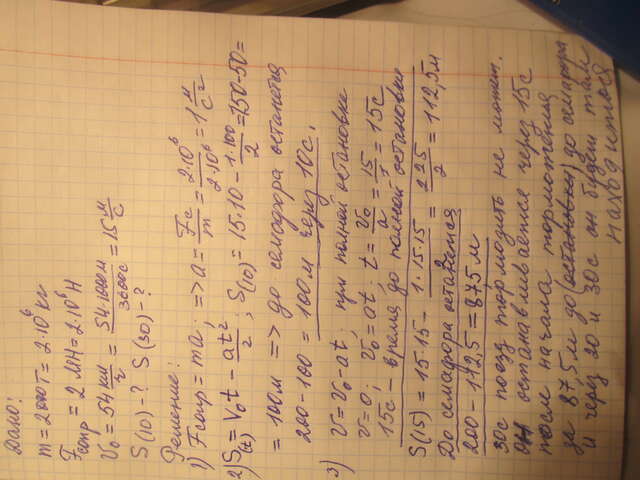 Дано:
m = 2000т = 2·10⁶ кг
Fсопр = 2 МН = 2·10⁶ Н
V₀ = 54 км/ч = 54·1000м/3600с = 15 м/с
S(10) - ? S(30) - ?
Решение:
1) Fсопр = ma; => a = Fс/m = 2·10⁶/2·10⁶ = 1 м/с²
2) S(t) = V₀t - at²/2; S(10) = 15·10 - 1·100/2 = 150-50 =
= 100м => до семафора останется
200 - 100 = 100м через 10с.
3) v = v₀ - at; при полной остановке
v = 0; v₀ = at; t = v₀/a = 15/1 = 15с
15с - время до полной остановки
S(15) = 15·15 - 1·15·15/2 = 225/2 = 112,5м
До семафора останется
200 - 112,5 = 87,5 м
30с поезд тормозить не может.
Он останавливается через 15с
после начала торможения
за 87,5м до (остановки) до семафора
и через 20 и 30с он будет там
находиться